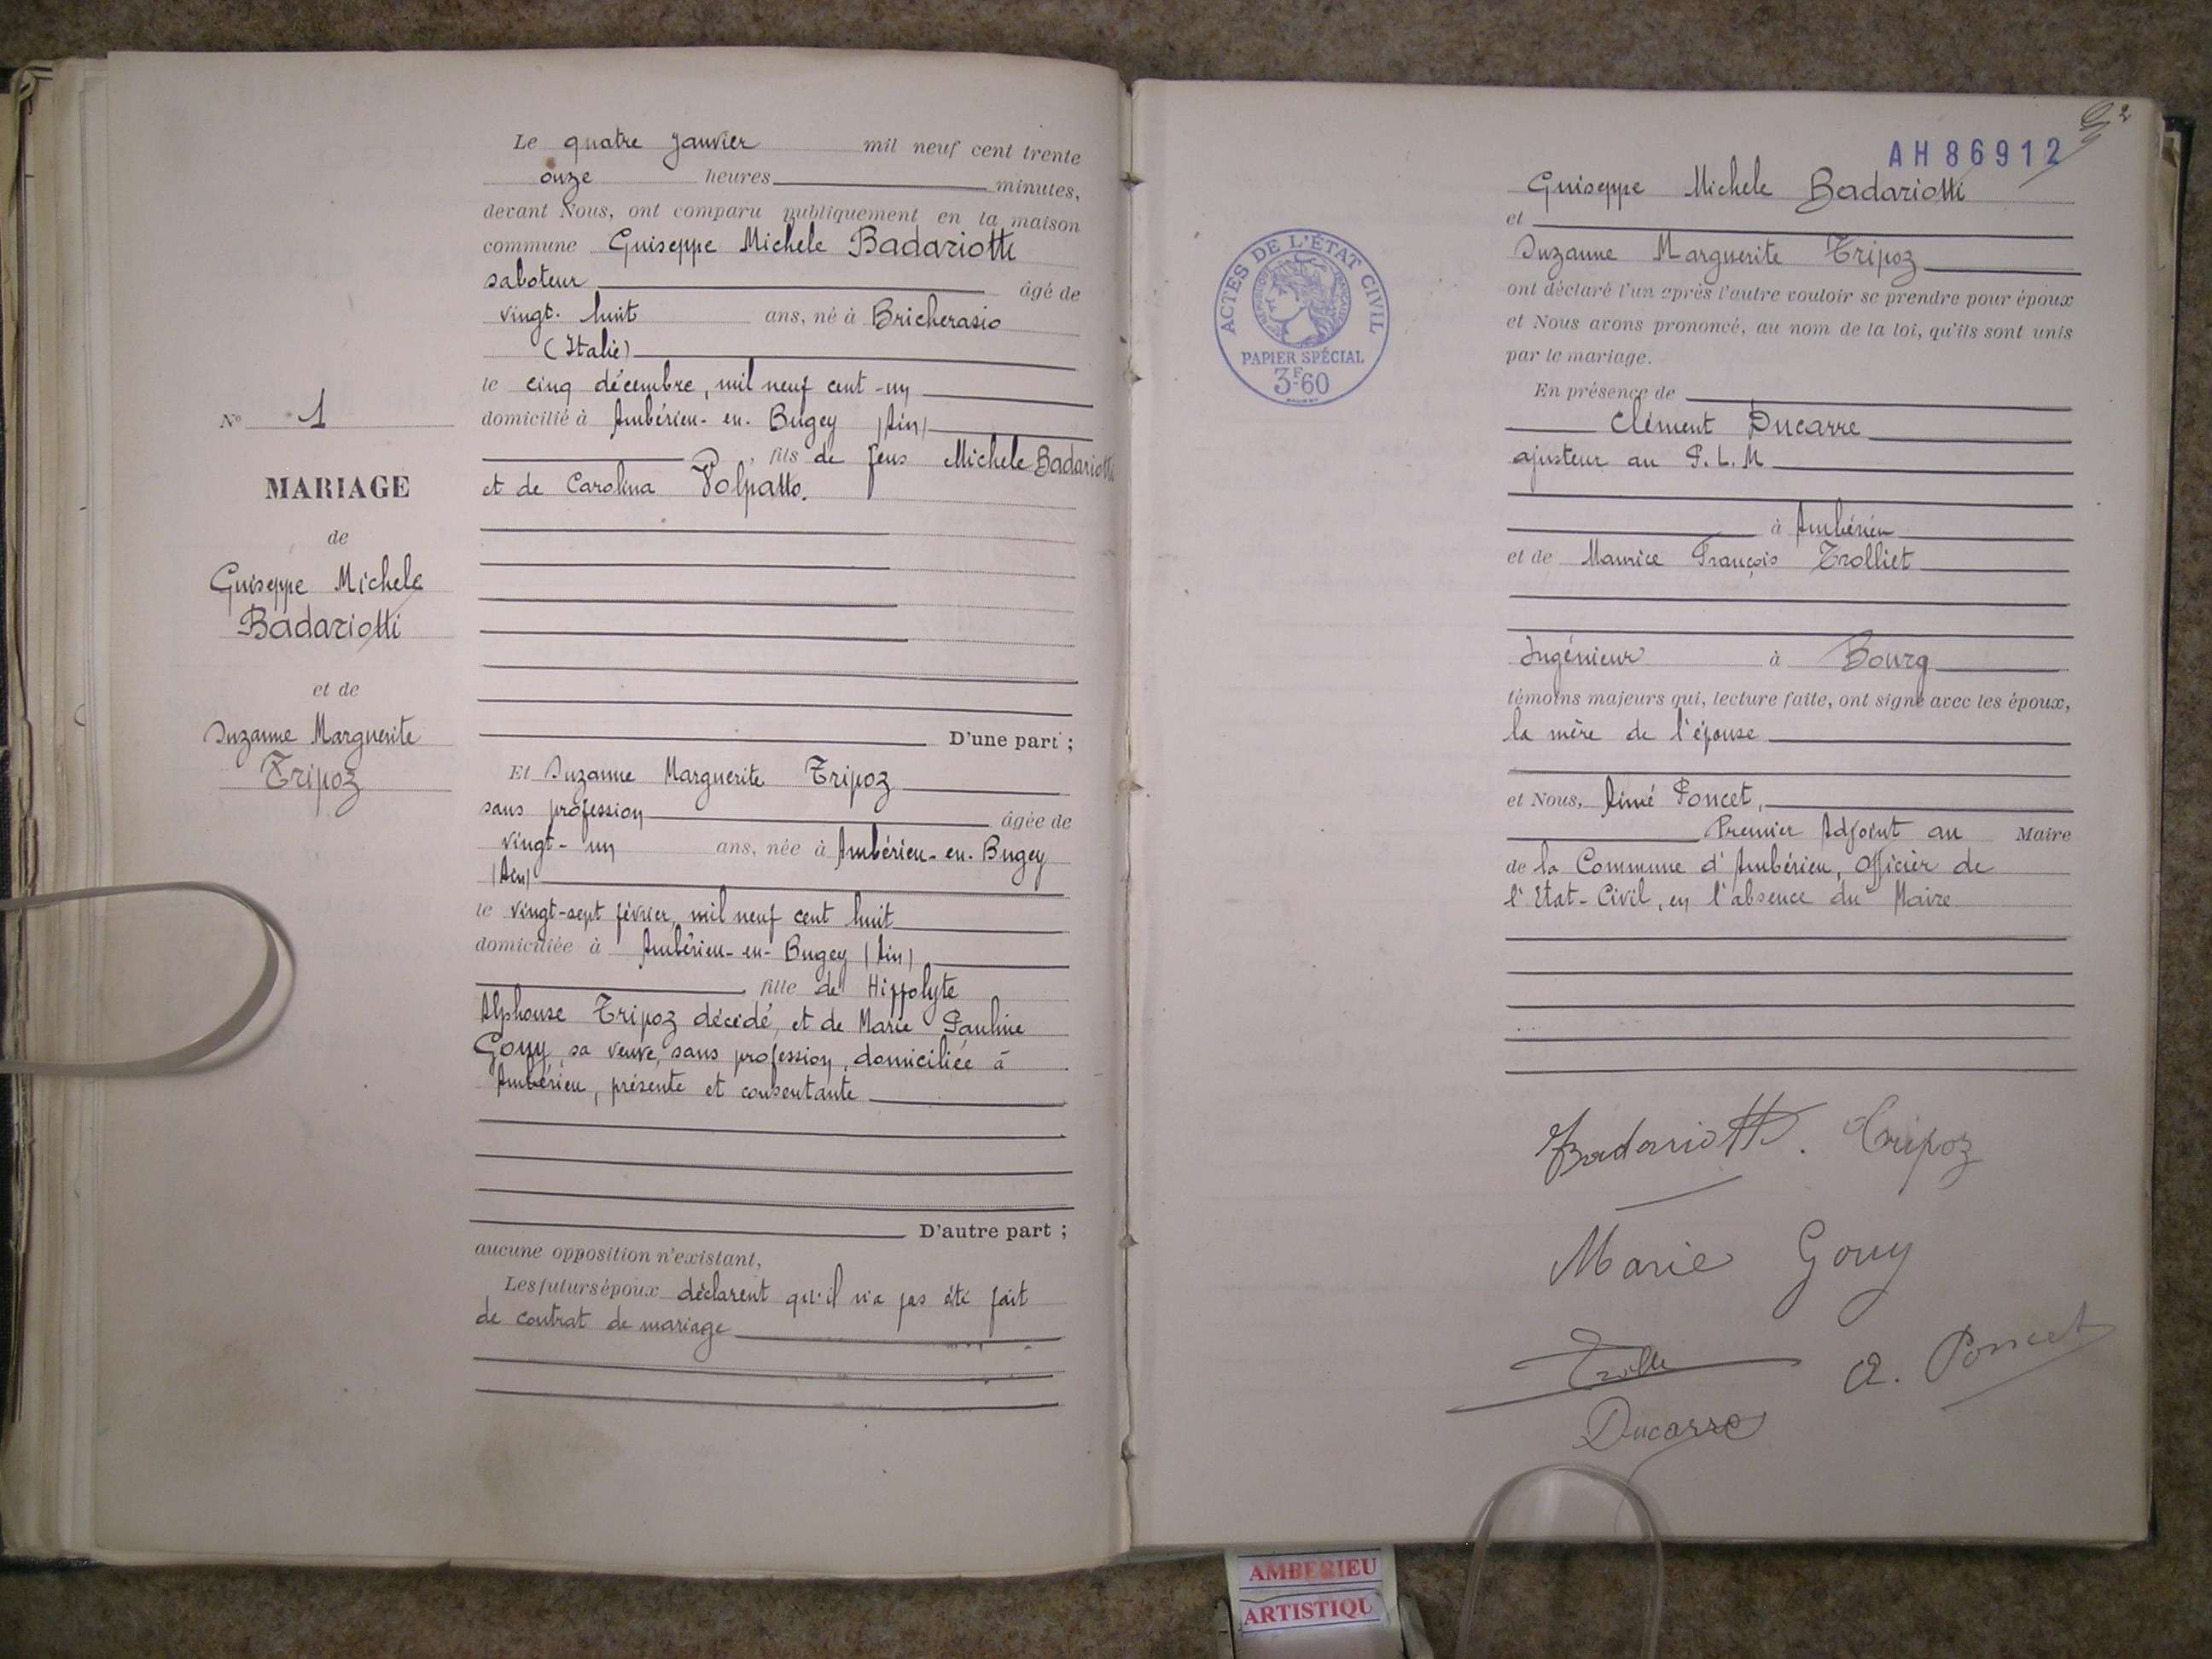 Le quatre Janvier mil neuf cent trente
onze heures minutes,
devant Nous, ont comparu publiquement en la maison
commune Guiseppe Michele Badariotti
saboteur âgé de
vingt-huit ans, né à Bricherasio
(Italie)
le cinq décembre, mil neuf cent-un
domicilié à Ambérieu-en-Bugey (Ain)
, fils de feus Michele Badariotti
et de Carolina Volpatto.
D'une part ;
Et Suzanne Marguerite Tripoz
sans profession âgée de
vingt-un ans, née à Ambérieu-en-Bugey
(Ain)
le vingt-sept février, mil neuf cent huit
domiciliée à Ambérieu-en-Bugey (Ain)
, fille de Hippolyte
Alphonse Tripoz décédé, et de Marie Pauline
Gouy, sa veuve, sans profession, domiciliée à
Ambérieu, présente et consentante
D'autre part ;
aucune opposition n'existant,
Les futurs époux déclarent qu'il n'a pas été fait
de contrat de mariage
N° 1
MARIAGE
de
Guiseppe Michele
Badariotti
et de
Suzanne Marguerite
Tripoz
2
AH86912
Guiseppe Michele Badariotti
et
Suzanne Marguerite Tripoz
ont déclaré l'un après l'autre vouloir se prendre pour époux
et Nous avons prononcé, au nom de la loi, qu'ils sont unis
par le mariage.
En présence de
Clément Ducarre
ajusteur au P.L.M
à Ambérieu
et de Maurice François Trolliet
Ingénieur à Bourg
témoins majeurs qui, lecture faite, ont signé avec les époux,
la mère de l'épouse
et Nous, Aimé Poncet,
Premier Adjoint au Maire
de la Commune d'Ambérieu, Officier de
l'Etat-Civil, en l'absence du Maire
ACTES DE L'ÉTAT CIVIL
PAPIER SPÉCIAL
3F60
Badariotti. Tripoz
Marie Gouy
A. Poncet
Ducarre
AMBERIEU
ARTISTIQU